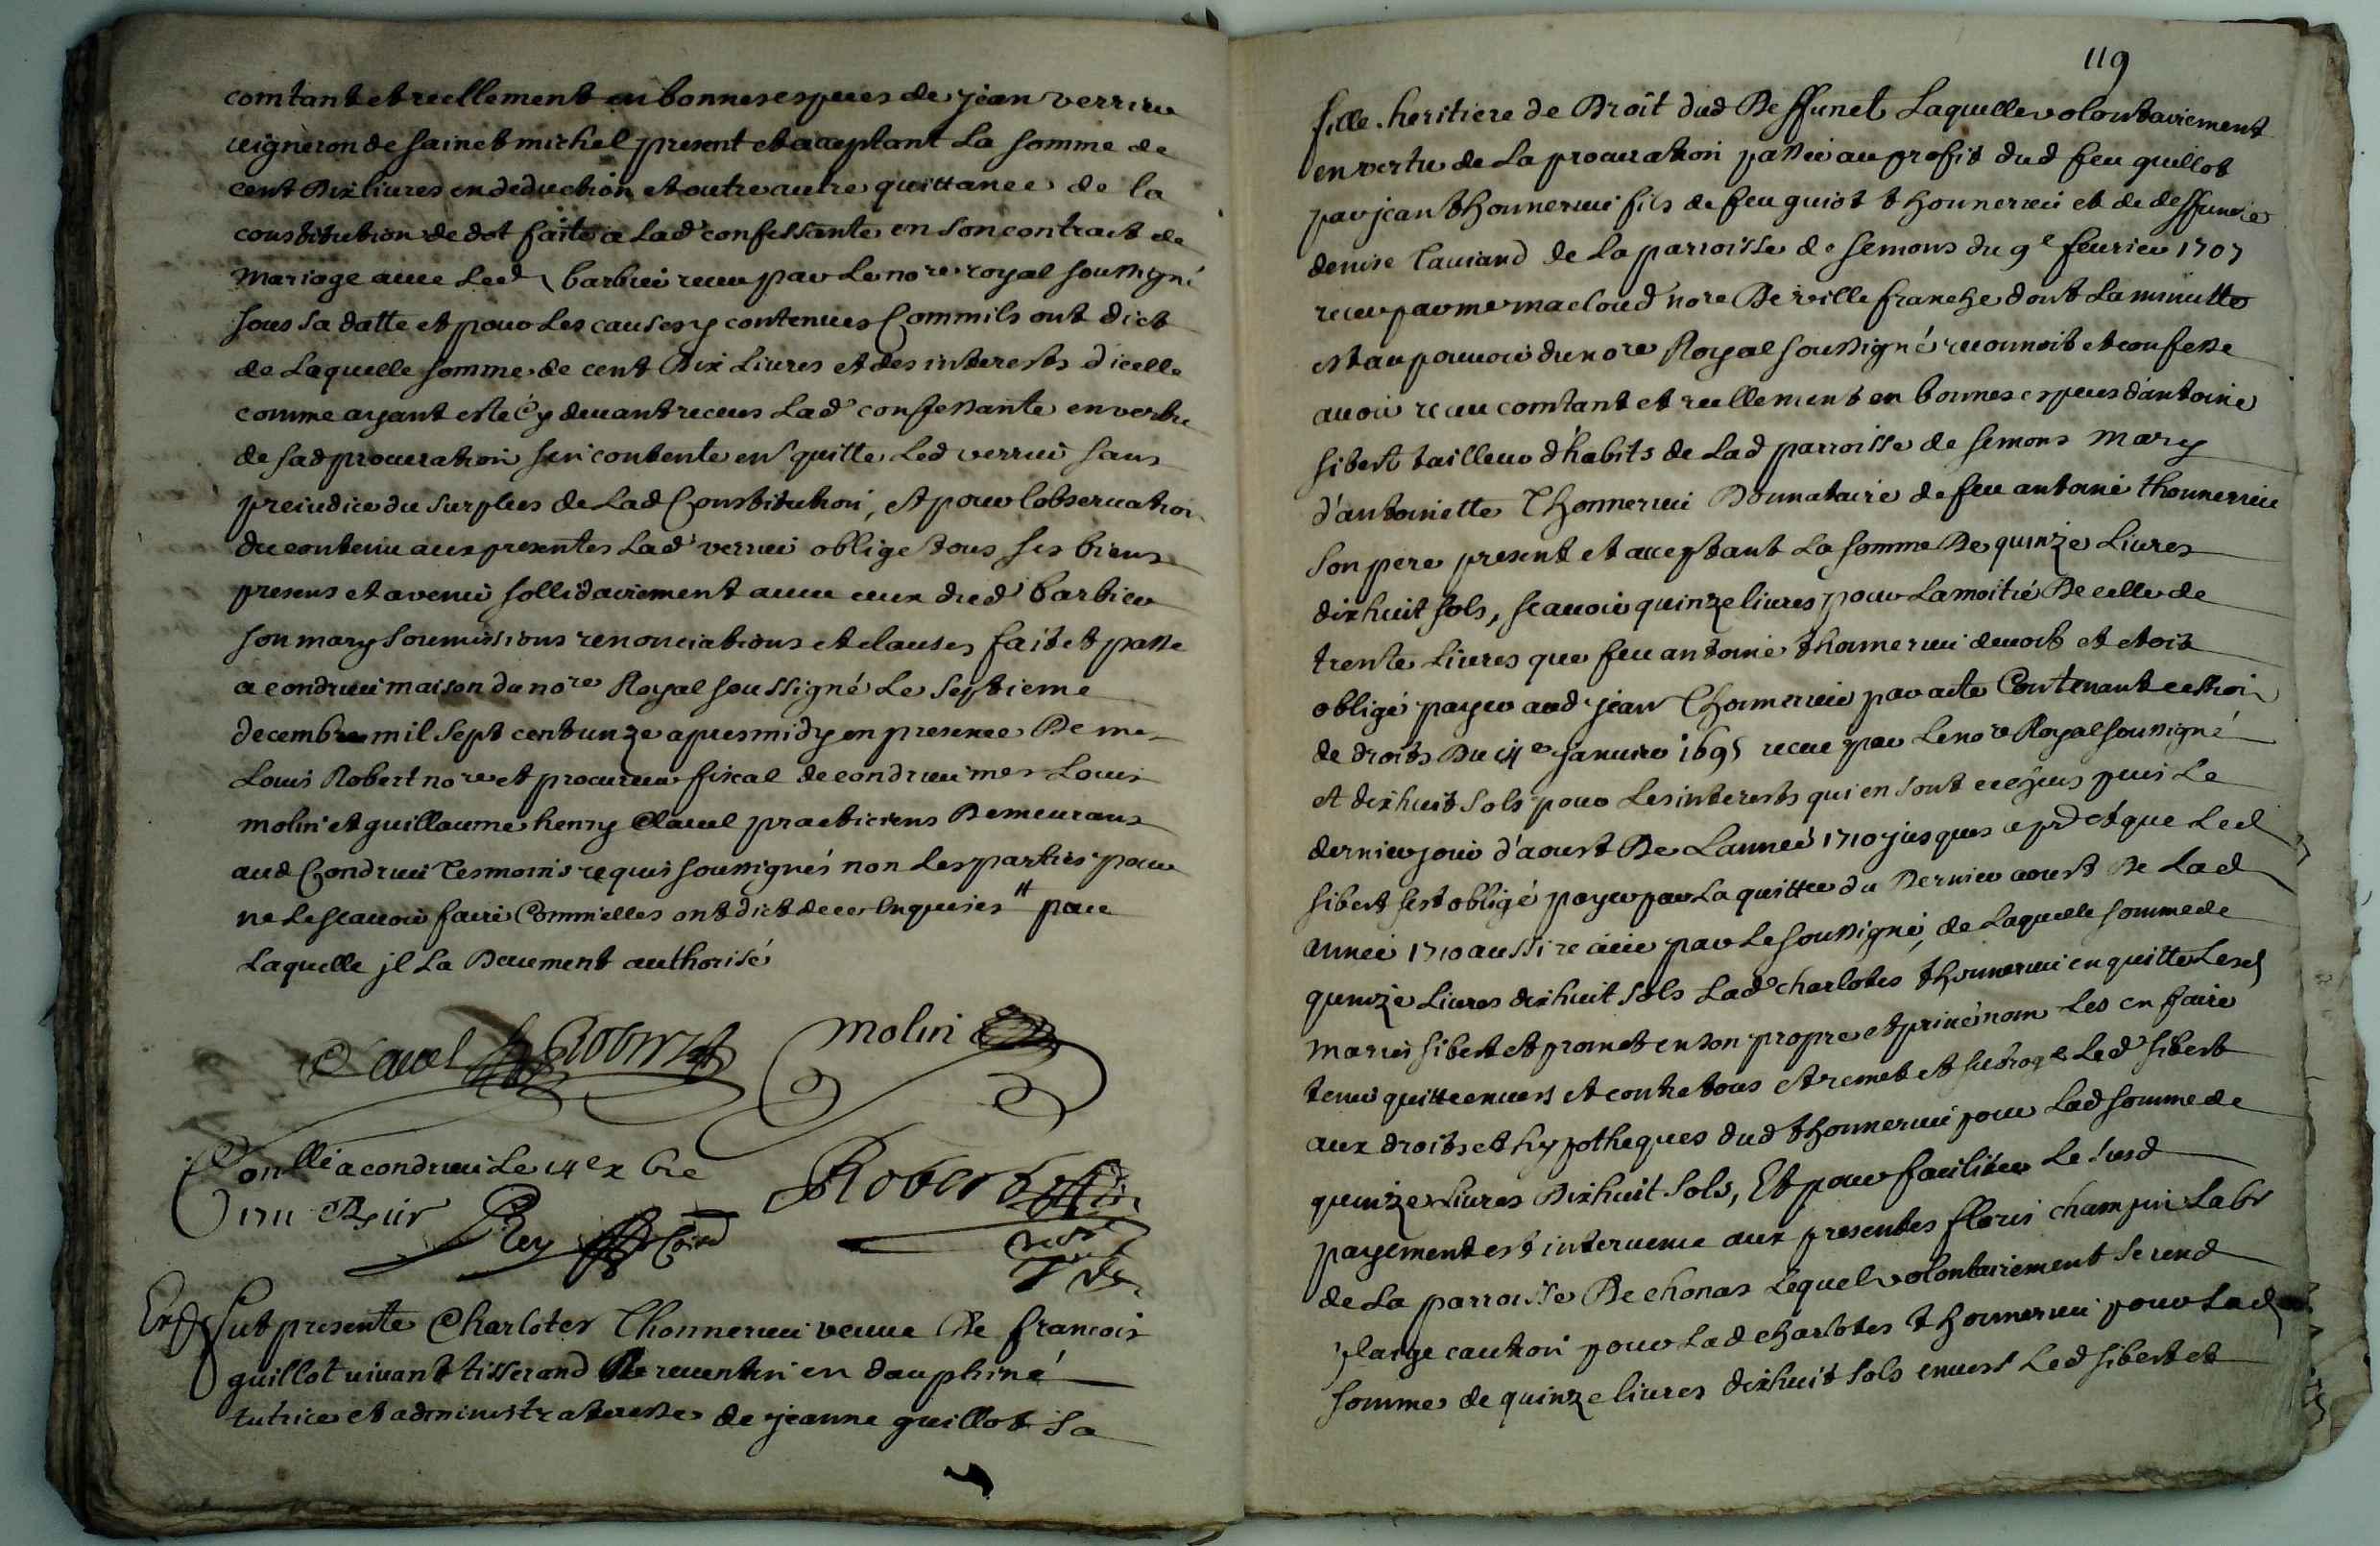 comtant et reellement en bonnes especes de jean verrieu
vigneron de sainct michel present et acceptant La somme de
cent Dix livres en deduction et outre autre quittance de la
constitution de dot faite a Lad confessante en son contract de
Mariage avec Led barbier receu par Le nore royal soussigné
sous sa datte et pour Les causes y contenues Comm ils ont dict
de Laquelle somme de cent Dix Livres et des interests d icelle
comme ayant esté cy devant receus Lad confessante en vertu
de sad procuration s en contente en quitte Led verrieu sans
preiudice du surplus de Lad Constitution, et pour l observation
du contenu aux presentes Lad verrieu oblige tous ses biens
presens et avenir sollidairement avec ceux dud barbier
son mary soumissions renonciations et clauses fait et passé
a condrieu maison du nore Royal soussigné Le septieme
decembre mil sept cent unze apres midy en presence De me
Louis Robert nore et procureur fiscal de condrieu mes Louis
molin et guillaume henry Clavel practiciens Demeurans
aud Condrieu Tesmoins requis soussignés non Les parties pour
ne Le scavoir faire Comm elles ont dict de ce Enquises # par
Laquelle jl La Deuement authorisé
Clavel Robert Molin
Conllé a condrieu Le 14e xbre
1711 Rey Robert
Sut presente Charlotes Thonnerieu veuve De francois
guillot vivant tisserand De reventin en dauphiné
tutrice et administrateresse de jeanne guillot sa
119
fille heritiere de Droit dud Deffunct Laquelle volontairement
en vertu de La procuration passée au profit dud feu guillot
par jean thonnerieu fils de feu guiot thonnerieu et de deffuncte
denise Lauiand de La parroisse de semons du 9e feurier 1707
receu par me macloud nore De ville franche dont La minutte
est au pouvoir du nore Royal soussigné reconnoit et confesse
avoir receu comtant et reellement en bonnes especes d antoine
sibert tailleur d habits de Lad parroisse de semons Mary
d antoinette Thonnerieu Donnataire de feu antoine thonnerieu
son pere present et acceptant La somme De quinze Livres
dixhuit sols, scavoir quinze livres pour La moitié De celle de
trente Livres que feu antoine thonnerieu devoit et etoit
obligé payer aud jean Thonnerieu par acte Contenant cession
de droits Du 4e janvier 1695 receu par Le nore Royal soussigné
et dixhuit sols pour Les interests qui en sont echeus puis Le
dernier jour d aoust De L année 1710 jusques a pnt et que Led
sibert s est obligé payer par La quittce du Dernier aoust De Lad
année 1710 aussi receue par Le soussigné, de Laquelle somme de
quinze Livres dixhuit sols Lad charlotes thonnerieu en quitte Lesd
mariés sibert et promet en son propre et privé nom Les en faire
tenir quitte envers et contre tous et remet et subroge Led sibert
aux droits et hypotheques dud thonnerieu pour Lad somme de
quinze Livres Dixhuit sols, Et pour faciliter Le susd
payement est intervenu aux presentes floris champin Labr
de La parroisse De chonas Lequel volontairement se rend
plaige caution pour Lad charlotes thonnerieu pour Lad
somme de quinze livres dixhuit sols envers Led sibert et